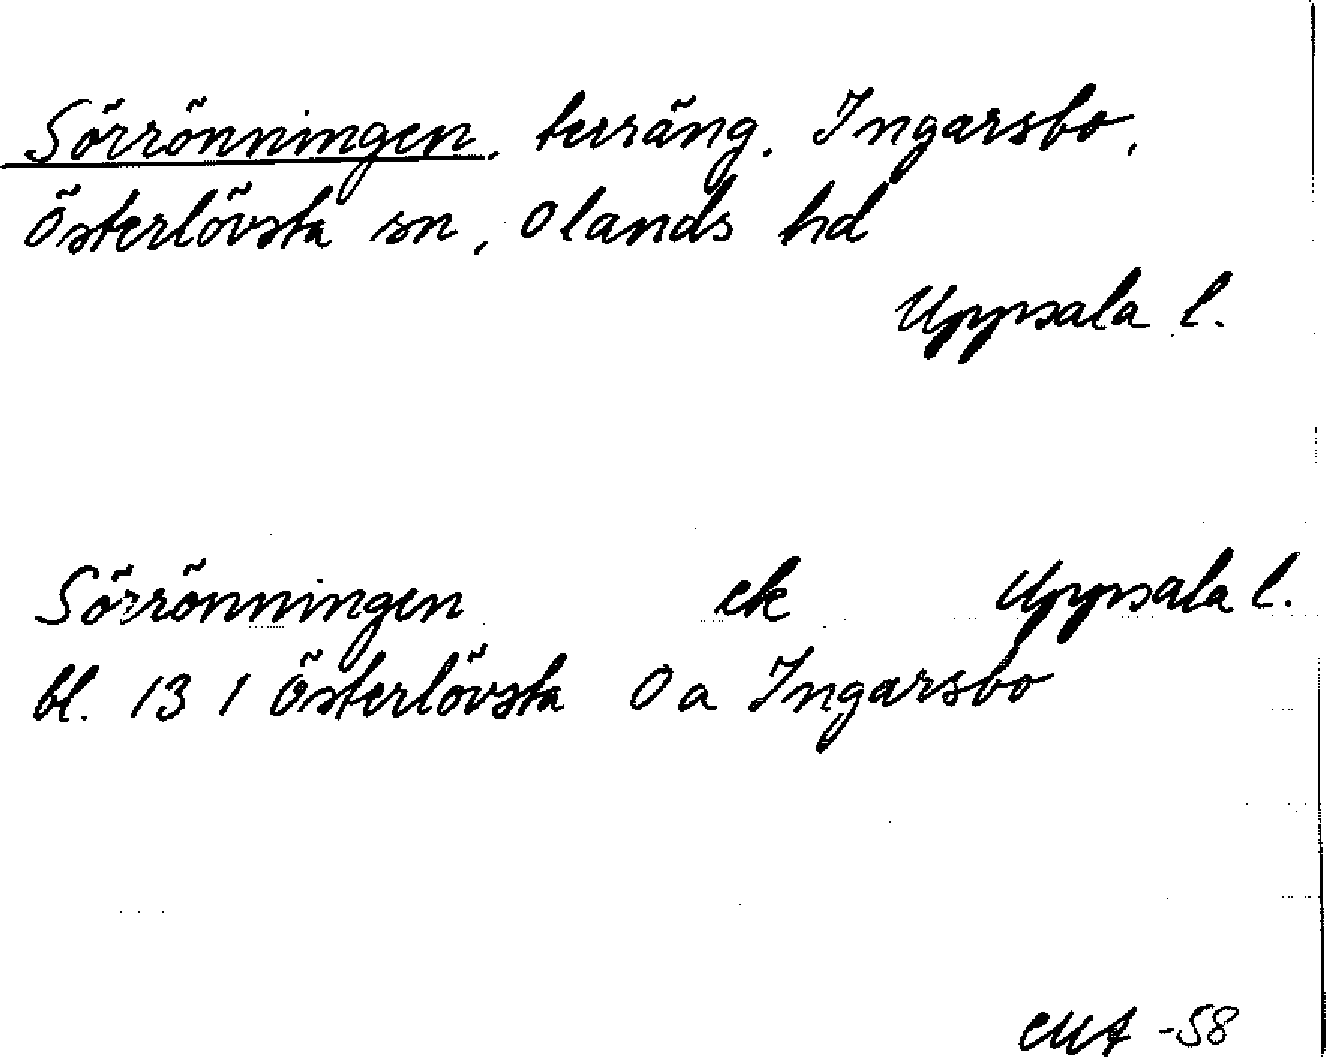 Sörrönningen, terräng, Ingarsbo,
Österlövsta sn, Olands hd
Uppsala l.
Sörrönningen ek Uppsala l.
bl. 13 I Österlövsta Oa Ingarsbo
-58